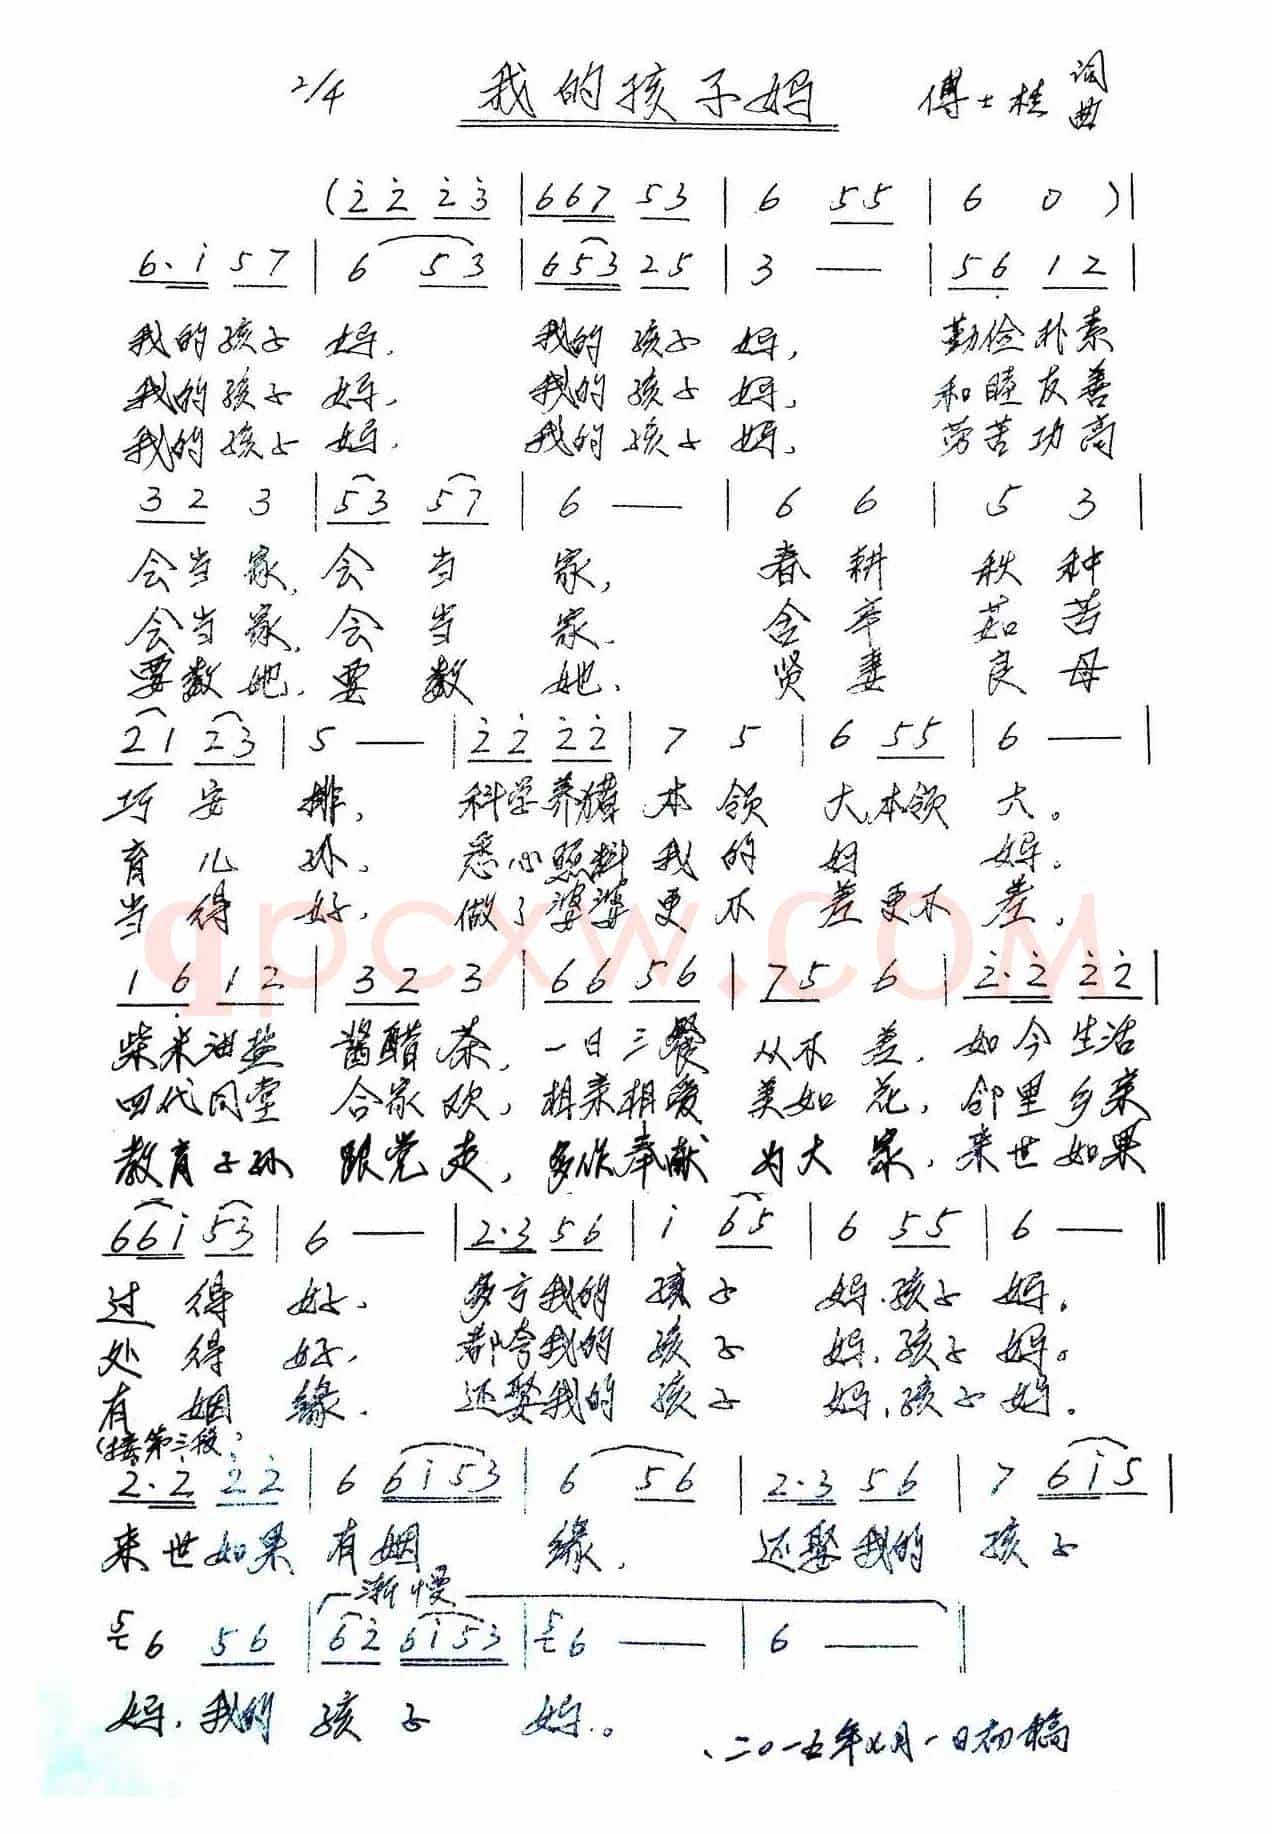 2/4 我的孩子妈 傅士桂 词曲
(2̇2̇ 2̇3̇ | 667 53 | 6 55 | 6 0 )|
6·i 57 | 6 53 | 653 25 | 3 — | 56̣ 12 |
我的孩子 妈, 我的孩子妈, 勤俭朴素
我的孩子 妈, 我的孩子妈, 和睦友善
我的孩子 妈, 我的孩子妈, 劳苦功高
32 3 | 53 57 | 6 — | 6 6 | 5 3 |
会当家, 会当家, 春耕秋种
会当家, 会当家. 含辛茹苦
要数她. 要数她. 贤妻良母
21 23 | 5 — | 2̇2̇ 2̇2̇ | 7 5 | 6 55 | 6 — |
巧安排, 科学养猪本领大,本领大。
育儿孙, 悉心照料我的妈妈。
当得好, 做了婆婆更不差更不差,
16̣ 12 | 32 3 | 66 56 | 75 6 | 2̇·2̇ 2̇2̇ |
柴米油盐酱醋茶, 一日三餐从不差, 如今生活
四代同堂合家欢, 相亲相爱美如花, 邻里乡亲
教育子孙跟党走, 多作奉献为大家, 来世如果
66i 53 | 6 — | 2·3 56 | i 65 | 6 55 | 6 — ‖
过得好, 多亏我的孩子妈.孩子妈。
处得好, 都夸我的孩子妈,孩子妈。
有姻缘. 还娶我的孩子妈,孩子妈。
(接第三段)
2̇·2̇ 2̇2̇ | 6 6i53 | 6 56 | 2·3 56 | 7 6i5 |
来世如果有姻缘, 还娶我的孩子
渐慢
5 6 56 | 62̇ 6i53 | 5 6 — | 6 — ‖
妈, 我的孩子妈。
二〇一五年七月一日初稿
qpcxw.com